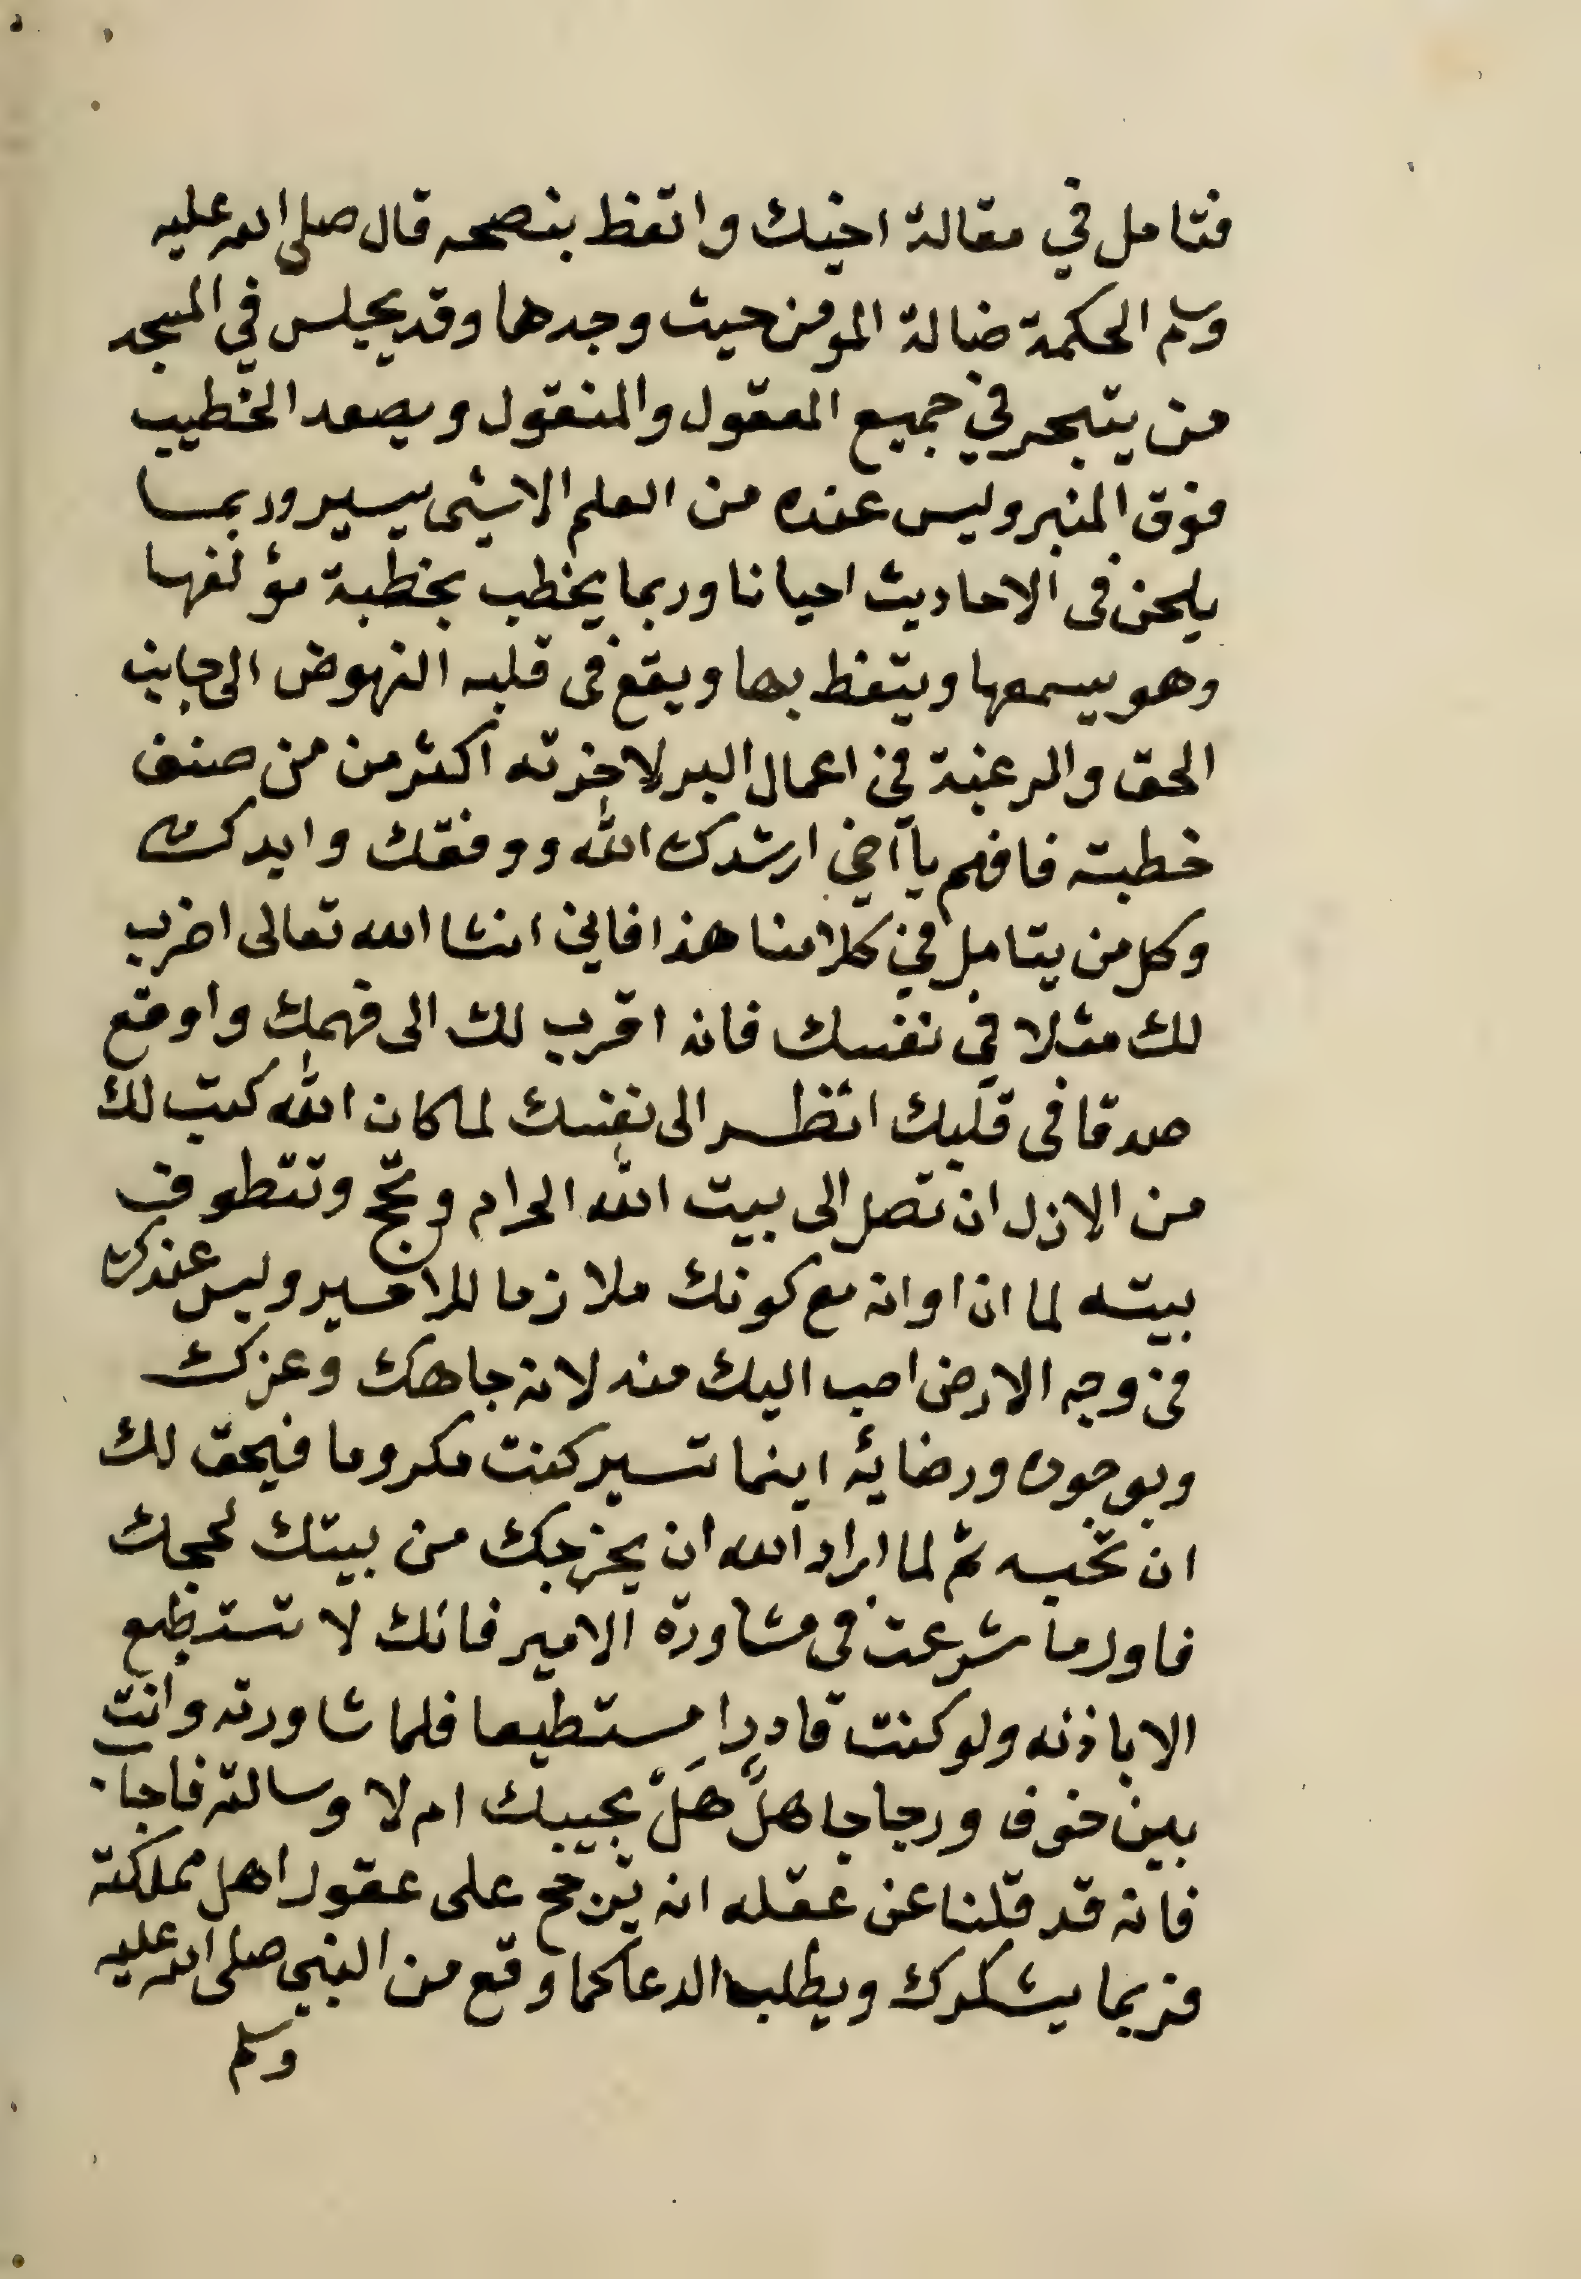 فتامل في مقالة اخيك واتعظ بنصحه قال صلى الله عليه
وسلم الحكمة ضالة المومن حيث وجدها وقد يجلس في المسجد
من يتبحر في جميع المعقول والمنقول ويصعد الخطيب
فوق المنبر وليس عنده من العلم الا شى يسير وربما
يلحن فى الاحاديث احيانا وربما يخطب بخطبة مؤلفها
وهو يسمعها ويتعظ بها ويقع فى قلبه النهوض الى جانب
الحق والرغبة في اعمال البر لاخرته اكثر من من صنف
خطبته فافهم يا آخي ارشدك الله ووفقك وايدك
وكل من يتامل في كلامنا هذا فاني انشا الله تعالى اضرب
لك مثلا في نفسك فانه اقرب لك الى فهمك واوقع
صدقا فى قلبك انظر الى نفسك لما كان الله كتب لك
من الازل ان تصل الى بيت الله الحرام وتحج وتتطوف
بيته لما ان اوانه مع كونك ملازما للامير وليس عندك
في وجه الارض احب اليك منه لانه جاهك وعزك
وبوجوده ورضايه اينما تسير كنت مكروما فيحق لك
ان تحبه ثم لما اراد الله ان يخرجك من بيتك لحجك
فاول ما شرعت فى مشاورة الامير فانك لا تستطيع
الا باذنه ولو كنت قادرا مستطيعا فلما شاورته وانت
بين خوف ورجا جاهلً هَلْ يجيبك ام لا وسالته فاجاب
فانه قد قلنا عن عقله انه يرجح على عقول اهل مملكته
فربما يشكرك ويطلب الدعا كما وقع من النبي صلى الله عليه
وسلم